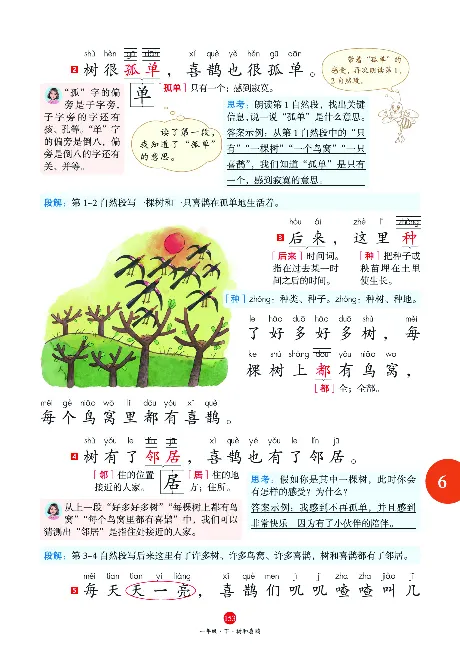 shù hěn gū dān　xǐ què yě hěn gū dān
2 树很孤单，喜鹊也很孤单。
带着“孤单”的
感受，再次朗读第1、
2自然段。
“孤”字的偏
旁是子字旁，
子字旁的字还有
孩、孔等。“单”字
的偏旁是倒八，偏
旁是倒八的字还有
关、并等。
单
［孤单］只有一个；感到寂寞。
读了第一段，
我知道了“孤单”
的意思。
思考：朗读第1自然段，找出关键
信息，说一说“孤单”是什么意思。
答案示例：从第1自然段中的“只
有”“一棵树”“一个鸟窝”“一只
喜鹊”，我们知道“孤单”是只有
一个，感到寂寞的意思。
段解：第1-2自然段写一棵树和一只喜鹊在孤单地生活着。
hòu lái　zhè lǐ zhòng
3 后来，这里种
［后来］时间词。
指在过去某一时
间之后的时间。
［种］把种子或
秧苗埋在土里
使生长。
［种］zhǒng：种类、种子。zhòng：种树、种地。
le hǎo duō hǎo duō shù　měi
了好多好多树，每
kē shù shàng dōu yǒu niǎo wō
棵树上都有鸟窝，
［都］全；全部。
měi gè niǎo wō lǐ dōu yǒu xǐ què
每个鸟窝里都有喜鹊。
shù yǒu le lín jū　xǐ què yě yǒu le lín jū
4 树有了邻居，喜鹊也有了邻居。
［邻］住的位置
接近的人家。
居
［居］住的地
方；住所。
从上一段“好多好多树”“每棵树上都有鸟
窝”“每个鸟窝里都有喜鹊”中，我们可以
猜测出“邻居”是指住处接近的人家。
思考：假如你是其中一棵树，此时你会
有怎样的感受？为什么？
答案示例：我感到不再孤单，并且感到
非常快乐，因为有了小伙伴的陪伴。
6
段解：第3-4自然段写后来这里有了许多树、许多鸟窝、许多喜鹊，树和喜鹊都有了邻居。
měi tiān tiān yí liàng　xǐ què men jī jī zhā zhā jiào jǐ
5 每天天一亮，喜鹊们叽叽喳喳叫几
153
一年级·下·树和喜鹊